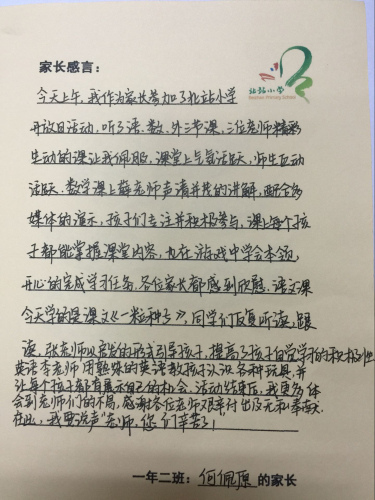 北站小学
家长感言：
今天上午，我作为家长参加了北站小学
开放日活动，听了语、数、外三节课，三位老师精彩
生动的课让我佩服，课堂上气氛活跃，师生互动
活跃。数学课上薛老师声情并茂的讲解，配合多
媒体的演示，孩子们专注并积极参与，课上每个孩
子都能掌握课堂内容，也在游戏中学会本领，
开心的完成学习任务，各位家长都感到欣慰。语文课
今天学的是课文《一粒种子》，同学们反复听读，跟
读，张老师以的形式引导孩子，提高了孩子自觉学习的积极性
英语李老师用熟练的英语教孩子认识各种玩具并
让每个孩子都有展示自己的机会。活动结束后，我更多体
会到老师们的不易，感谢各位老师艰辛付出及无私奉献。
在此，我要说声"老师，您们辛苦了！
一年二班：何佩原的家长